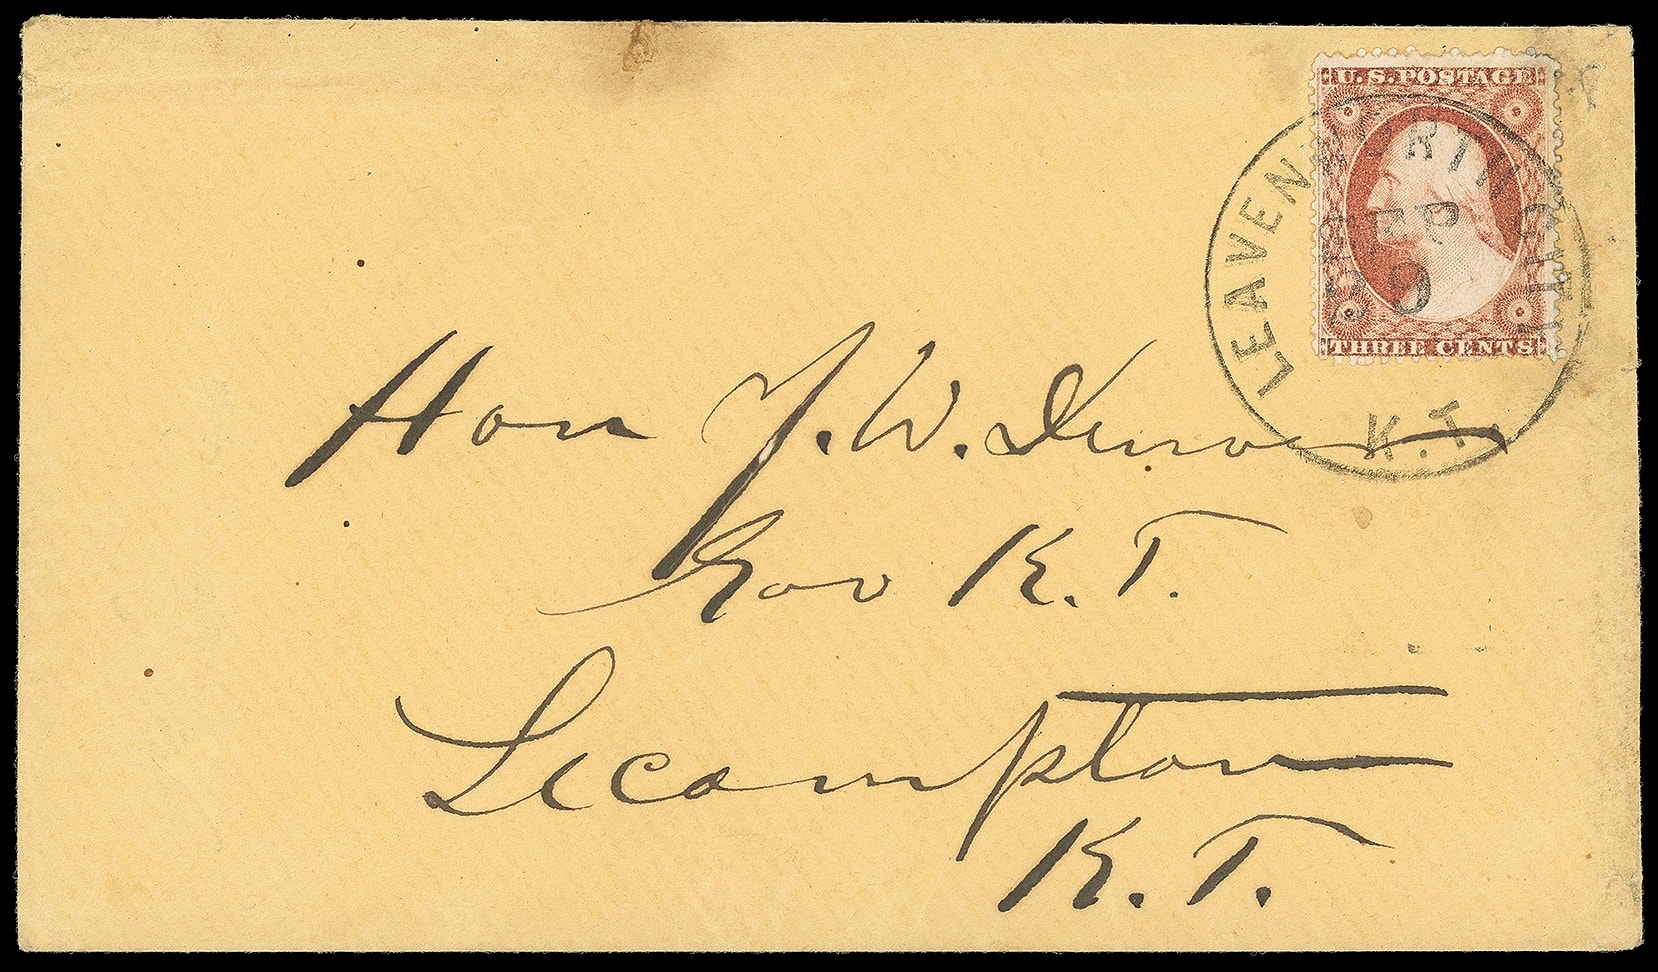 U.S. POSTAGE
THREE CENTS
LEAVENWORTH CITY
SEP
9
K.T.
Hon J. W. Denver
Gov K. T.
Lecompton
K. T.